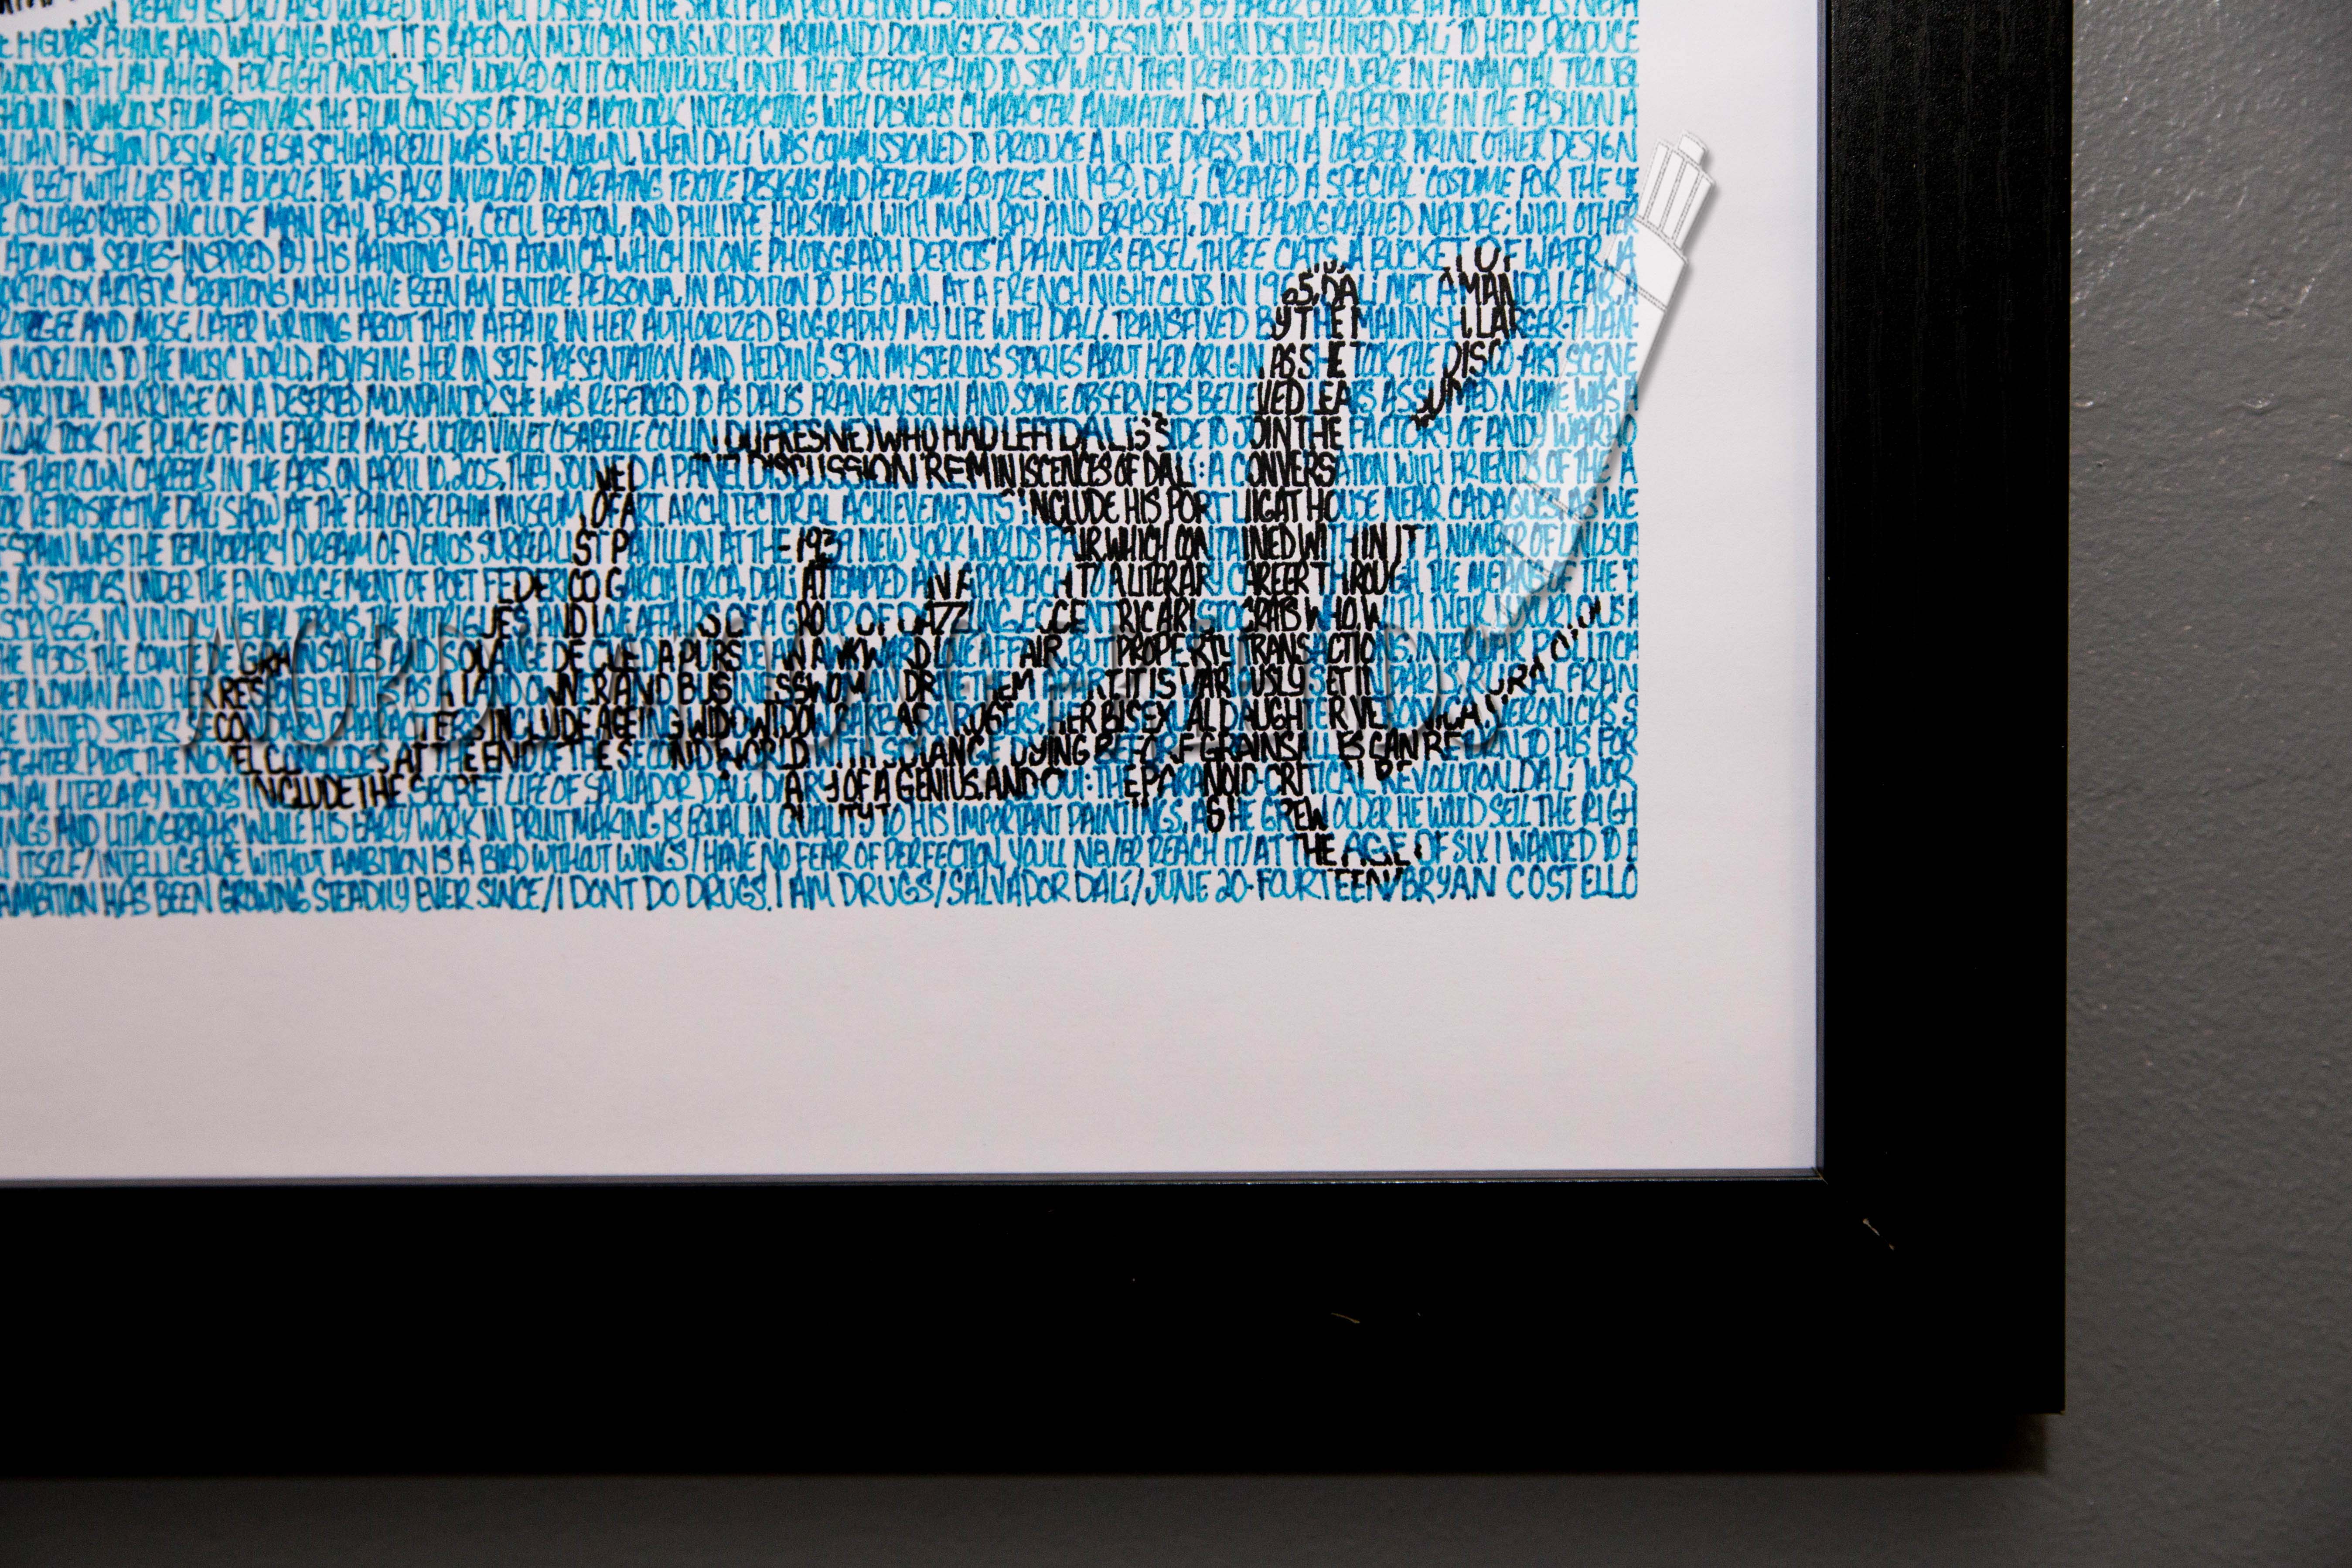 REALLY IS. DALÍ ALSO WORKED WITH WALT DISNEY ON THE SHORT FILM PRODUCTION DESTINO. COMPLETED IN 2003 BY BAKER BLOODWORTH AND
FIGURES FLYING AND WALKING ABOUT. IT IS BASED ON MEXICAN SONGWRITER ARMANDO DOMINGUEZ'S SONG "DESTINO". WHEN DISNEY HIRED DALÍ TO HELP PRODUCE
WORK THAT LAY AHEAD. FOR EIGHT MONTHS, THEY WORKED ON IT CONTINUOUSLY, UNTIL THEIR EFFORTS HAD TO STOP WHEN THEY REALIZED THEY WERE IN FINANCIAL
IN VARIOUS FILM FESTIVALS. THE FILM CONSISTS OF DALÍ'S ARTWORK INTERACTING WITH DISNEY'S CHARACTER ANIMATION. DALÍ BUILT A REPERTOIRE IN THE FASHION A
FASHION DESIGNER ELSA SCHIAPARELLI WAS WELL-KNOWN, WHEN DALÍ WAS COMMISSIONED TO PRODUCE A WHITE DRESS WITH A LOBSTER PRINT. OTHER DESIGN
BELT WITH LIPS FOR A BUCKLE. HE WAS ALSO INVOLVED IN CREATING TEXTILE DESIGNS AND PERFUME BOTTLES. IN 1950, DALÍ CREATED A SPECIAL "COSTUME FOR THE YE
COLLABORATED INCLUDE MAN RAY, BRASSAÏ, CECIL BEATON, AND PHILIPPE HALSMAN. WITH MAN RAY AND BRASSAÏ, DALÍ PHOTOGRAPHED NATURE; WITH OTHER
ATOMICA SERIES-INSPIRED BY HIS PAINTING LEDA ATOMICA-WHICH IN ONE PHOTOGRAPH DEPICTS "A PAINTER'S EASEL, THREE CATS, A BUCKET OF WATER,
ARTISTIC CREATIONS MAY HAVE BEEN AN ENTIRE PERSONA, IN ADDITION TO HIS OWN. AT A FRENCH NIGHTCLUB IN 1965, DALÍ MET AMANDA LEAR, A
AND MUSE, LATER WRITING ABOUT THEIR AFFAIR IN HER AUTHORIZED BIOGRAPHY MY LIFE WITH DALÍ. TRANSFIXED BY THE MANNISH, LARGER-THAN-
MODELING TO THE MUSIC WORLD, ADVISING HER ON SELF-PRESENTATION AND HELPING SPIN MYSTERIOUS STORIES ABOUT HER ORIGIN AS SHE TOOK THE DISCO-ART SCENE
SPIRITUAL MARRIAGE ON A DESERTED MOUNTAINTOP. SHE WAS REFERRED TO AS DALÍ'S FRANKENSTEIN AND SOME OBSERVERS BELIEVED LEAR'S ASSUMED NAME WAS A
TOOK THE PLACE OF AN EARLIER MUSE, ULTRA VIOLET (ISABELLE COLLIN DUFRESNE) WHO HAD LEFT DALÍ'S SIDE TO JOIN THE FACTORY OF ANDY WARHO
THEIR OWN CAREERS IN THE ARTS. ON APRIL 10, 2005, THEY JOINED A PANEL DISCUSSION "REMINISCENCES OF DALÍ: A CONVERSATION WITH FRIENDS OF THE A
RETROSPECTIVE DALÍ SHOW AT THE PHILADELPHIA MUSEUM OF ART. ARCHITECTURAL ACHIEVEMENTS INCLUDE HIS PORT LLIGAT HOUSE NEAR CADAQUES AS WE
SPAIN WAS THE TEMPORARY DREAM OF VENUS SURREALIST PAVILLION AT THE-1939 NEW YORK WORLD'S FAIR WHICH CONTAINED WITHIN IT A NUMBER OF UNUSUA
AS STATUES. UNDER THE ENCOURAGEMENT OF POET FEDERICO GARCIA LORCA, DALÍ ATTEMPTED AN APPROACH TO A LITERARY CAREER THROUGH THE MEANS OF THE "P
IN VIVIDLY VISUAL TERMS, THE INTRIGUES AND LOVE AFFAIRS OF A GROUP OF DAZZLING, ECCENTRIC ARISTOCRATS WHO, WITH THEIR LUXURIOUS A
THE 1930S. THE COMTE DE GRANSAILLES AND SOLANGE DE CLEDA PURSUE AN AWKWARD LOVE AFFAIR, BUT PROPERTY TRANSACTIONS, INTERWAR POLITICA
WOMAN AND HER RESPONSIBILITIES AS A LANDOWNER AND BUSINESSWOMAN DRIVE THEM APART. IT IS VARIOUSLY SET IN PARIS, RURAL FRAN
THE UNITED STATES. SECONDARY CHARACTERS INCLUDE AGEING WIDOW BARBARA ROGERS, HER BISEXUAL DAUGHTER VERONICA, VERONICA'S S
FIGHTER PILOT. THE NOVEL CONCLUDES AT THE END OF THE SECOND WORLD WITH SOLANGE DYING BEFORE GRANSAILLES CAN RETURN TO HIS FOR
LITERARY WORKS INCLUDE THE SECRET LIFE OF SALVADOR DALÍ, DIARY OF A GENIUS, AND OUI: THE PARANOID-CRITICAL REVOLUTION. DALÍ WOR
AND LITHOGRAPHS. WHILE HIS EARLY WORK IN PRINTMAKING IS EQUAL IN QUALITY TO HIS IMPORTANT PAINTINGS, AS HE GREW OLDER HE WOULD SELL THE RIGH
ITSELF/INTELLIGENCE WITHOUT AMBITION IS A BIRD WITHOUT WINGS/HAVE NO FEAR OF PERFECTION, YOU'LL NEVER REACH IT/AT THE AGE OF SIX I WANTED TO B
AMBITION HAS BEEN GROWING STEADILY EVER SINCE/I DON'T DO DRUGS. I AM DRUGS/SALVADOR DALÍ/JUNE 20-FOURTEEN/BRYAN COSTELLO